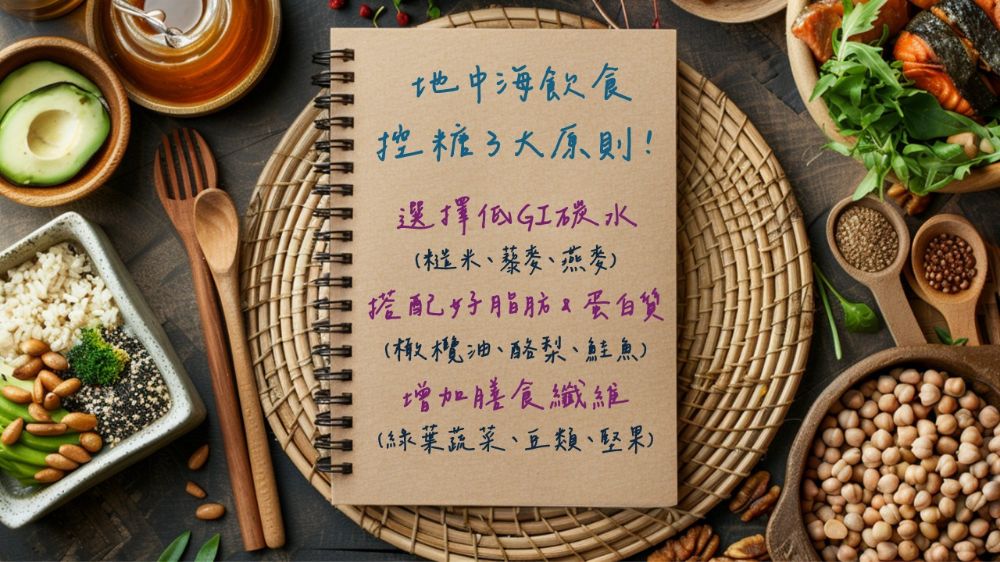 地中海飲食
控糖3大原則!
選擇低GI碳水
(糙米、藜麥、燕麥)
搭配好脂肪&蛋白質
(橄欖油、酪梨、鮭魚)
增加膳食纖維
(綠葉蔬菜、豆類、堅果)